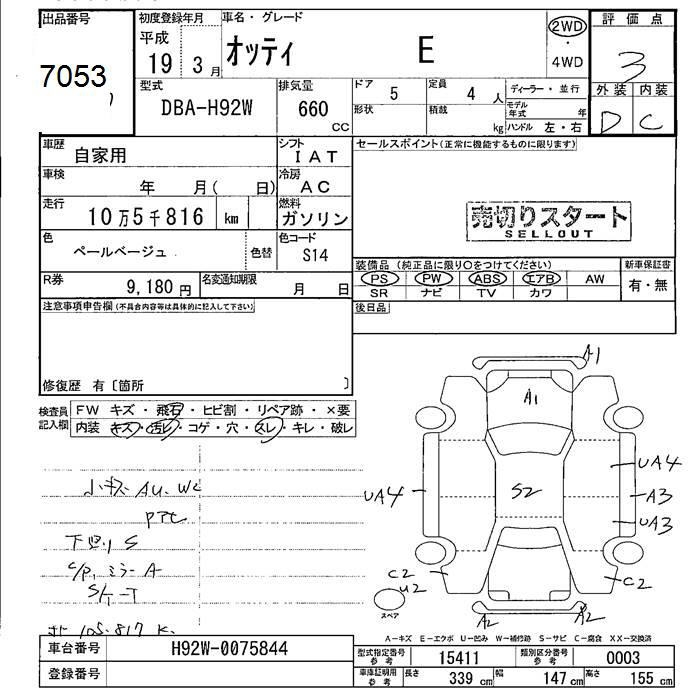 出品番号
7053
初度登録年月
平成
19 3月
車名・グレード
オッティ E
2WD
・
4WD
評価点
3
外装 内装
D C
型式
DBA-H92W
排気量
660
CC
ドア 5
形状
定員 4 人
積載 kg
ディーラー・並行
モデル年式 年
ハンドル 左・右
車歴
自家用
シフト
IAT
車検
年 月( 日)
冷房
AC
走行
10万5千816 km
燃料
ガソリン
色
ペールベージュ
色替
色コード
S14
R券
9,180円
名変通知期限
月 日
セールスポイント(正常に機能するものに限ります)
売切りスタート
SELLOUT
装備品 (純正品に限り○をつけてください)
PS PW ABS エアB AW
SR ナビ TV カワ
新車保証書
有・無
後日品
注意事項申告欄(不具合内容等は具体的に記入して下さい)
修復歴 有〔箇所 〕
検査員
記入欄
FW キズ・飛石・ヒビ割・リペア跡・×要
内装 キズ・汚レ・コゲ・穴・スレ・キレ・破レ
小キズ AU、WC
下回り S
ミラーA
105.817 K
A1
A1
UA4
UA4
S2
A3
UA3
C2
U2
C2
A2
A2
スペア
A-キズ E-エクボ U-凹み W-補修跡 S-サビ C-腐食 XX-交換済
車台番号 H92W-0075844
登録番号
型式指定番号
参考
15411
類別区分番号
参考
0003
車庫証明用
参考
長さ 339 cm 幅 147 cm 高さ 155 cm